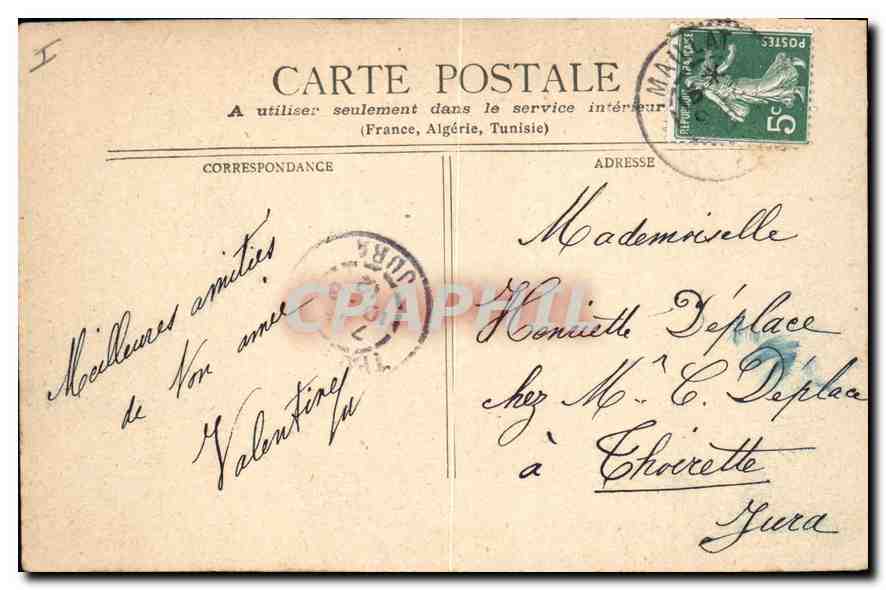 I
CARTE POSTALE
A utiliser seulement dans le service intérieur
(France, Algérie, Tunisie)
CORRESPONDANCE
Meilleures amitiés
de ton amie
Valentine
ADRESSE
Mademoiselle
Henriette Déplace
chez Mr C. Déplace
à Thoirette
Jura
POSTES
5c
MAILLAT
JURA
CPAPHIL